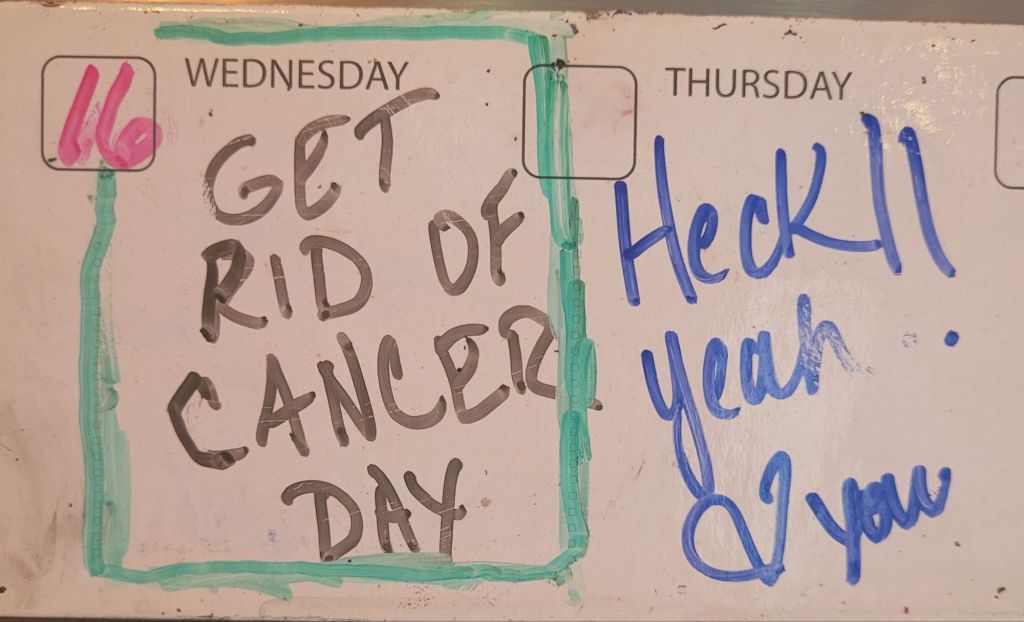 16 WEDNESDAY
GET
RID OF
CANCER
DAY
THURSDAY
Heck!!
yeah
you